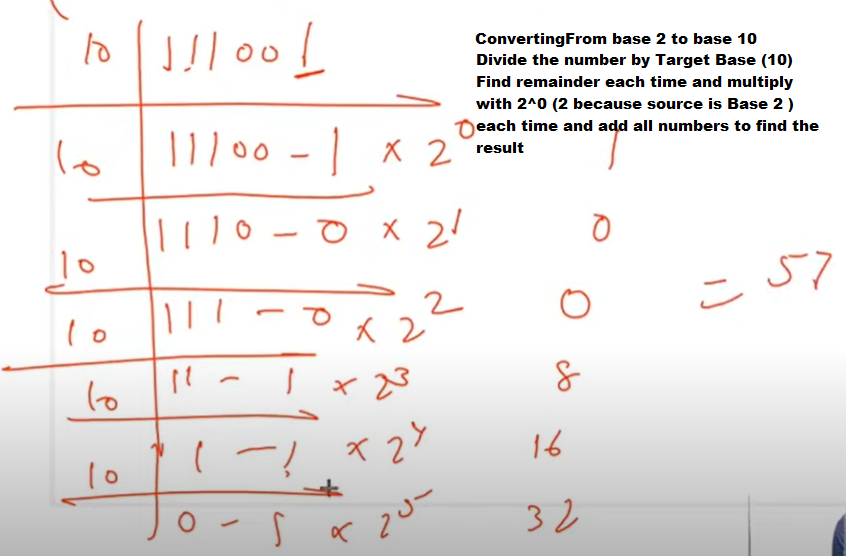 ConvertingFrom base 2 to base 10
Divide the number by Target Base (10)
Find remainder each time and multiply
with 2^0 (2 because source is Base 2 )
each time and add all numbers to find the
result
10 | 111001
10 | 11100 - 1 × 2^0 1
10 | 1110 - 0 × 2^1 0
10 | 111 - 0 × 2^2 0
10 | 11 - 1 × 2^3 8
10 | 1 - 1 × 2^4 16
0 - 1 × 2^5 32
= 57